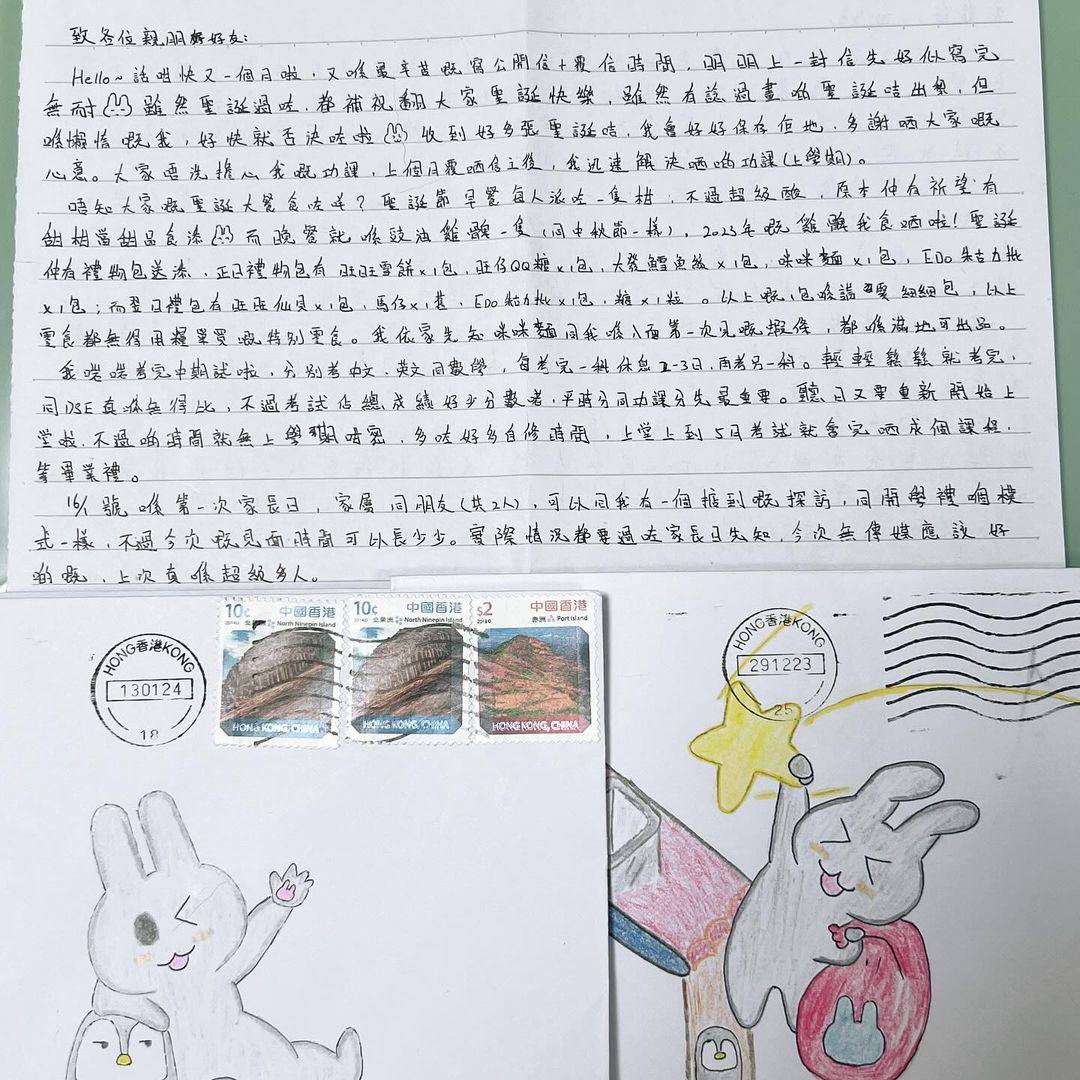 致各位親朋好友:
Hello~ 話咁快又一個月啦,又喺最辛苦嘅寫公開信+覆信時間,明明上一封信先好似寫完
無耐 雖然聖誕過咗,都補祝翻大家聖誕快樂,雖然有諗過畫啲聖誕咭出嚟,但
喺懶惰嘅我,好快就否決咗啦 收到好多張聖誕咭,我會好好保存佢地,多謝晒大家嘅
心意。大家唔洗擔心我嘅功課,上個月覆晒信之後,我迅速解決晒啲功課(上學期)。
唔知大家嘅聖誕大餐食咗咩?聖誕節早餐每人派咗一隻柑,不過超級酸,原本仲有祈望有
甜柑當甜品食添 而晚餐就喺豉油雞髀一隻(同中秋節一樣),2023年嘅雞髀我食晒啦!聖誕
仲有禮物包送添,正日禮物包有旺旺雪餅x1包,旺仔QQ糖x1包,大發鱈魚絲x1包,咪咪麵x1包,EDo朱古力批
x1包;而翌日禮包有旺旺仙貝x1包,馬仔x1,EDo朱古力批x1包,糖x1粒。以上嘅1包喺講細細包,以上
零食都無得用糧單買嘅特別零食。我依家先知咪咪麵同我喺入面第一次見嘅蝦條,都喺滿地可出品。
我啱啱考完中期試啦,分別考中文、英文同數學,每考完一科休息2-3日,再考另一科。輕輕鬆鬆就考完,
同DSE真喺無得比,不過考試佔總成績好少分數者,平時分同功課分先最重要。聽日又要重新開始上
堂啦,不過啲時間就無上學期咁密,多咗好多自修時間,上堂上到5月考試就會完晒成個課程,
等畢業禮。
16/1號喺第一次家長日,家屬同朋友(共2人),可以同我有一個掂到嘅探訪,同開學禮嗰個模
式一樣,不過今次嘅見面時間可以長少少。實際情況都要過咗家長日先知,今次無傳媒應該好
啲嘅,上次真喺超級多人。
10c 中國香港
2014 North Ninepin Island
HONG KONG, CHINA
10c 中國香港
2014 北果洲 North Ninepin Island
HONG KONG, CHINA
$2 中國香港
赤洲 Port Island
HONG KONG, CHINA
HONG香港KONG
130124
18
HONG香港KONG
291223
25